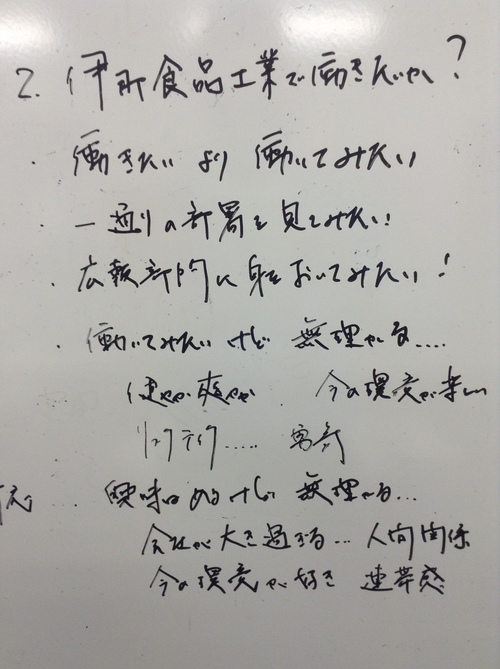 2. 伊那食品工業で働きたいか?
・働きたいより働いてみたい
・一通りの部署を見てみたい!
・広報部門に身をおいてみたい!
・働いてみたいけど無理かな....
健やか爽やか 今の環境が楽しい
リックテイク.....
・興味はあるけど無理かな...
会社が大き過ぎる... 人間関係
今の環境が好き 連帯感